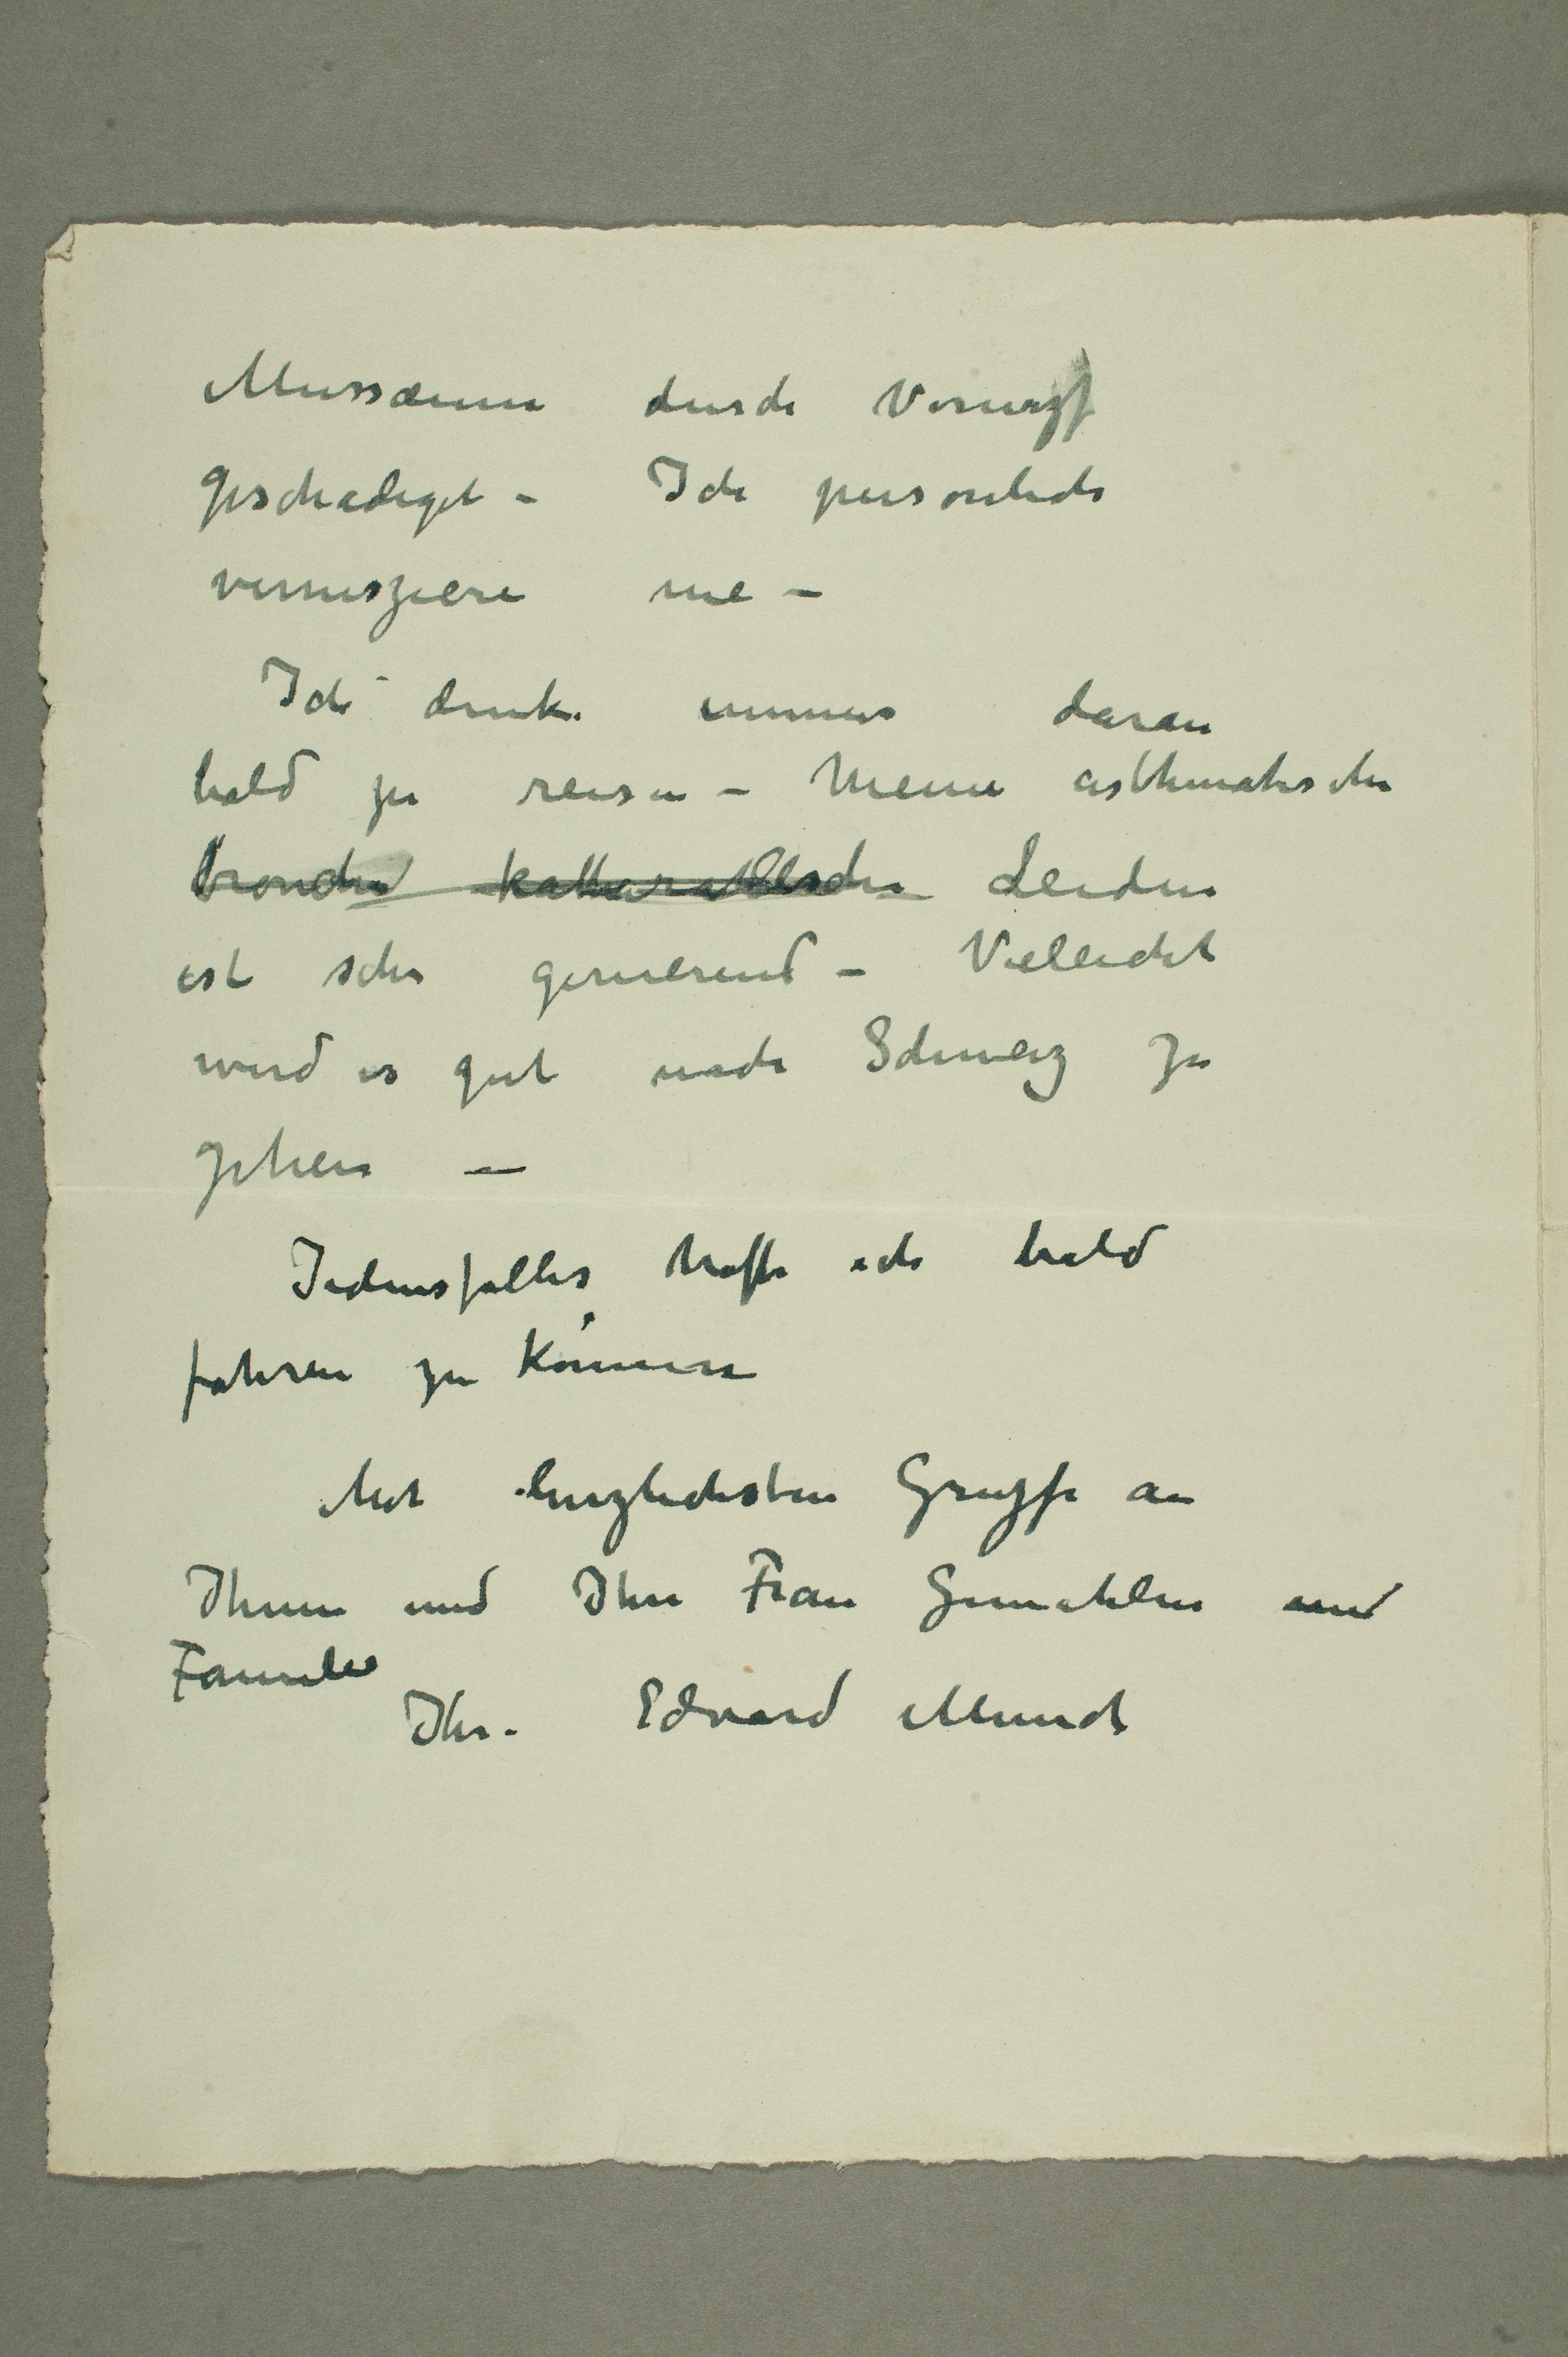 Mussæum durch Vernizf
geschadiget – Ich personlich
vernisziere nie –
Ich denke immer daran
bald zu reisen – Meine asthmatische
bronchi kattarallische Leiden
ist sehr genierend – Vielleicht
wird es gut nach Schweiz zu
gehen –
Jedensfalles hoffe ich bald
fahren zu können
Mit herzlichsten Grusze an
Ihnen und Ihre Frau Gemahlin und
Familie
Ihr. Edvard Munch